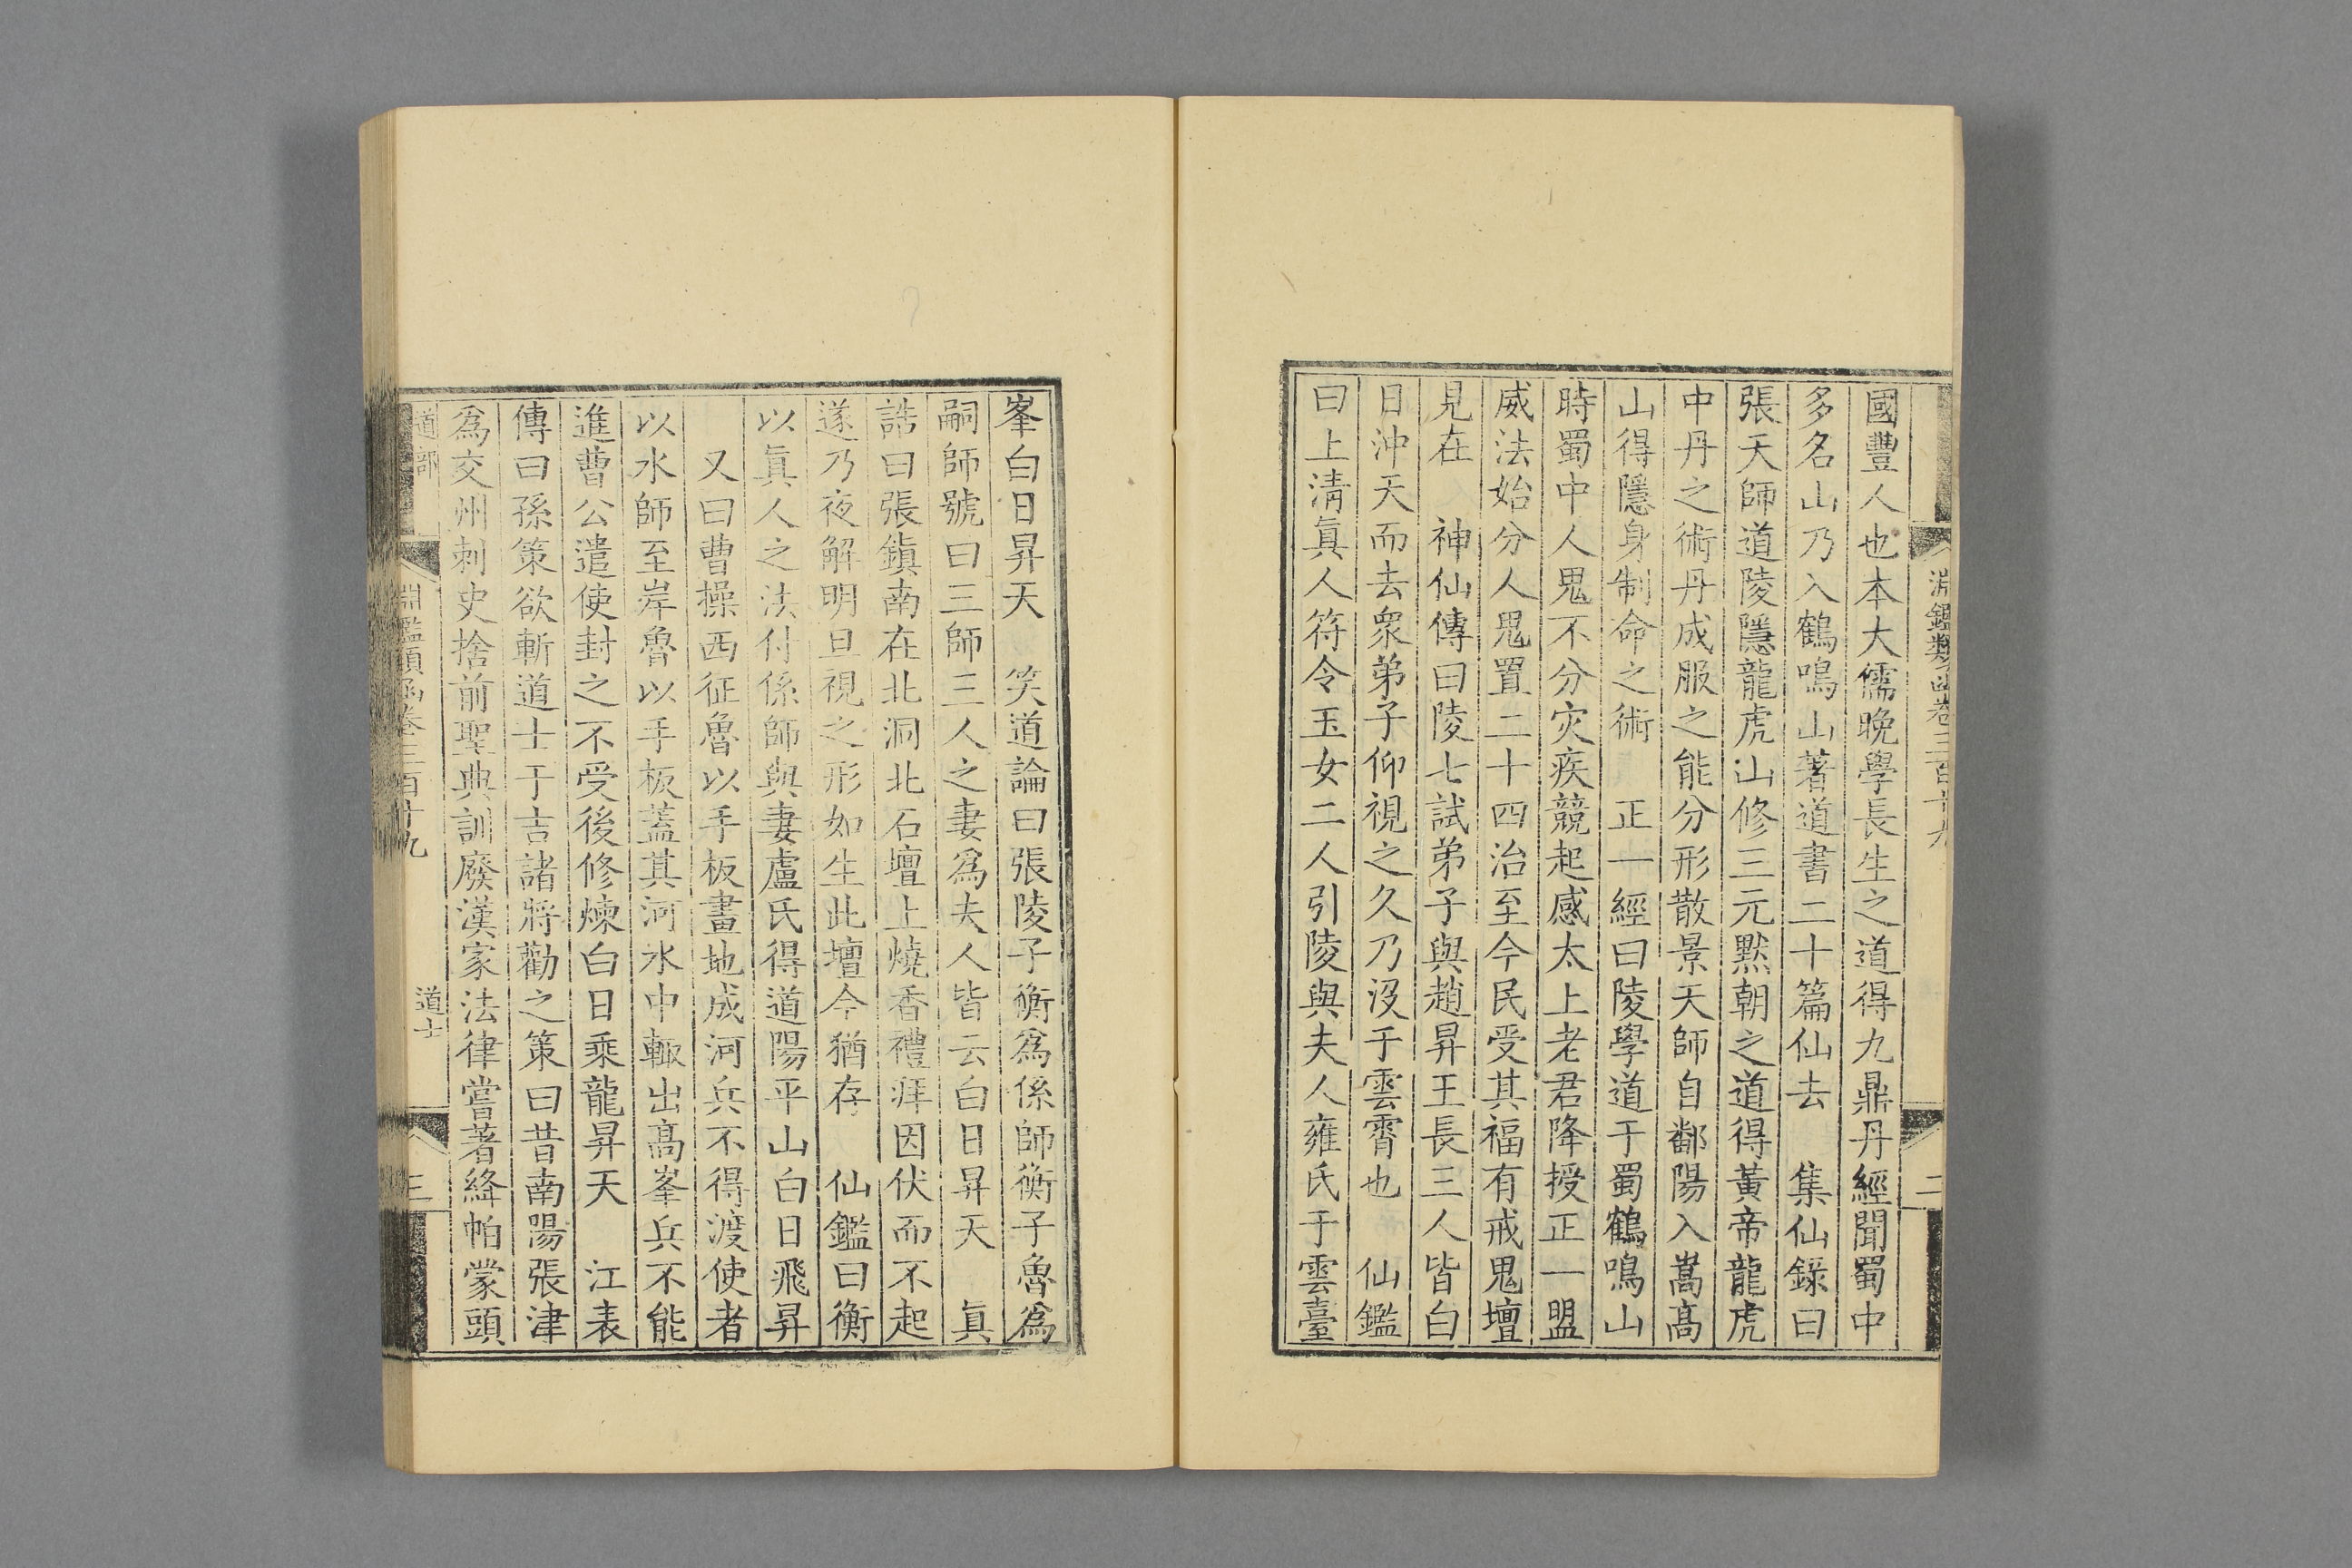 淵鑑類函卷三百十九
二
國豐人也本大儒晚學長生之道得九鼎丹經聞蜀中
多名山乃入鶴鳴山著道書二十篇仙去　集仙錄曰
張天師道陵隱龍虎山修三元默朝之道得黃帝龍虎
中丹之術丹成服之能分形散景天師自鄱陽入嵩高
山得隱身制命之術　正一經曰陵學道于蜀鶴鳴山
時蜀中人鬼不分灾疾競起感太上老君降授正一盟
威法始分人鬼置二十四治至今民受其福有戒鬼壇
見在　神仙傳曰陵七試弟子與趙昇王長三人皆白
日沖天而去衆弟子仰視之久乃沒于雲霄也　仙鑑
曰上清眞人符令玉女二人引陵與夫人雍氏于雲臺
峯白日昇天　笑道論曰張陵子衡爲係師衡子魯爲
嗣師號曰三師三人之妻爲夫人皆云白日昇天　眞
誥曰張鎭南在北洞北石壇上燒香禮拜因伏而不起
遂乃夜解明旦視之形如生此壇今猶存　仙鑑曰衡
以眞人之法付係師與妻盧氏得道陽平山白日飛昇
又曰曹操西征魯以手板畫地成河兵不得渡使者
以水師至岸魯以手板蓋其河水中輙出高峯兵不能
進曹公遣使封之不受後修煉白日乘龍昇天　江表
傳曰孫策欲斬道士于吉諸將勸之策曰昔南陽張津
爲交州刺史捨前聖典訓廢漢家法律嘗著絳帕蒙頭
道部
淵鑑類函卷三百十九
道士
三